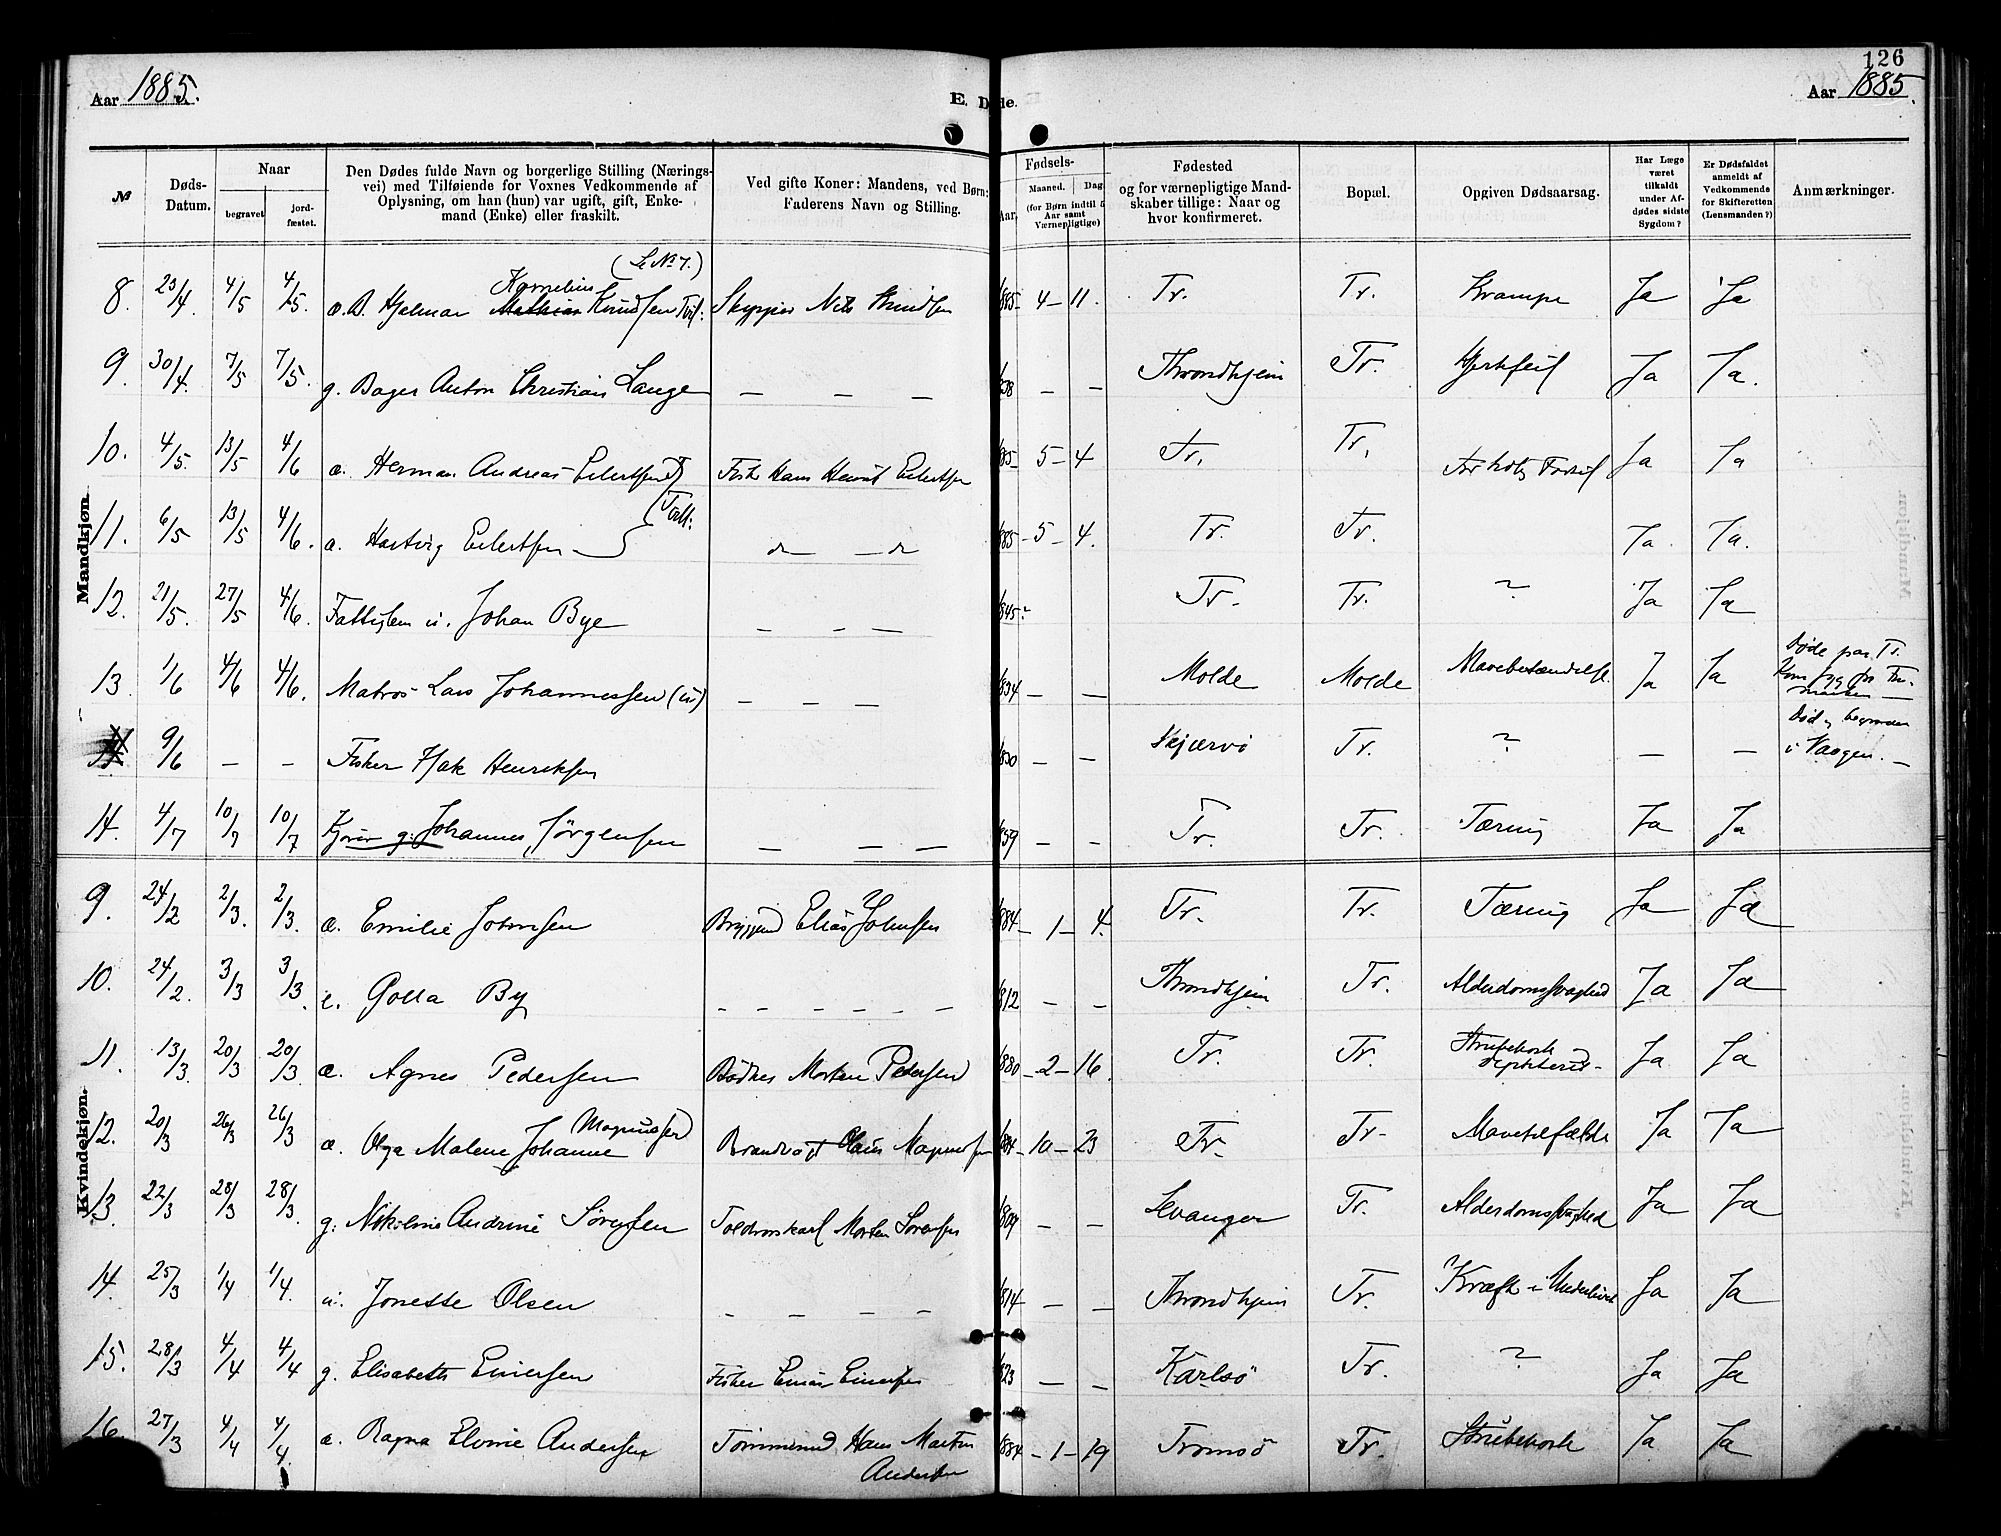 126
Aar 1885.
E. Døde.
Aar 1885.
№
Døds-Datum.
Naar
begravet
jordfæstet.
Den Dødes fulde Navn og borgerlige Stilling (Næringsvei) med Tilføiende for Voxnes Vedkommende af Oplysning, om han (hun) var ugift, gift, Enkemand (Enke) eller fraskilt.
Ved gifte Koner: Mandens, ved Børn: Faderens Navn og Stilling.
Fødsels-
Aar.
Maaned.
Dag
(for Børn indtil 5 Aar samt Værnepligtige)
Fødested
og for værnepligtige Mandskaber tillige: Naar og hvor konfirmeret.
Bopæl.
Opgiven Dødsaarsag.
Har Læge været tilkaldt under Afdødes sidste Sygdom?
Er Dødsfaldet anmeldt af Vedkommende for Skifteretten (Lensmanden?)
Anmærkninger.
Mandkjøn.
(Se No 7.)
Kornelius
8. 23/4 4/5 4/5 æ. B. Hjalmar Mathias Knudsen Tvil: Skipper Nils Knudsen 1885 4 11. Tr. Tr. Krampe Ja Ja
9. 30/4 7/5 7/5. g. Bager Anton Christian Lange — — — 1838 — — Throndhjem Tr. Hjertefeil Ja Ja.
10. 4/5. 13/5 4/6 æ. Herman Andreas Eilertsen Fisker Hans Henrik Eilertsen 1885 5 4 Tr. Tr. Ja Ja
Tvill:
11. 6/5 13/5 4/6. æ. Hartvig Eilertsen do — do 1885 5 4. Tr. Tr. Ja. Ja.
12. 21/5. 27/5 4/6. Fattiglem u. Johan Bye — — — 1845? Tr. Tr. ? Ja Ja
13. 1/6 4/6 4/6. Matros Lars Johannessen (u) — — — 1834 — — Molde Molde Mavebetændelse. Ja Ja Døde paa Tr.
Kom syg fra
14 9/6 — — Fisker Isak Henriksen 1830 — — Skjærvø Tr. ? — — Død og begraven
i Vaagen. —
14. 4/7 10/7 10/7 g. Johannes Jørgensen — — — 1859 — — Tr. Tr. Tæring Ja Ja
Kvindekjøn.
9. 24/2 2/3. 2/3. æ. Emilie Johnsen Elias Johnsen 1884 1 4. Tr. Tr. Tæring Ja Ja
10. 24/2. 3/3 3/3. e. Golla By — — — — — — 1812 — — Throndhjem Tr. Alderdomssvaghed Ja Ja
11. 13/3. 20/3 20/3 æ. Agnes Pedersen Bødker Morten Pedersen 1880 2 16. Tr. Tr. Strubehoste
Ja Ja
Magnussen
12. 20/3 26/3 26/3 æ. Olga Malene Johanne Brandvagt Claus Magnussen 1884 10 23 Tr. Tr. Mavetilfælde Ja Ja
13. 22/3 28/3 28/3. g. Nikoline Andrine Sørensen Toldroerskarl Morten Sørensen 1809 — — Levanger Tr. Alderdomssvaghed Ja Ja
14. 25/3 1/4 1/4. u. Jonette Olsen — — — — 1814 — — Throndhjem Tr. Kræft i Underlivet Ja Ja
15. 28/3 4/4 4/4 g. Elisabeth Einersen Fisker Einar Einersen 1823 — — Karlsø Tr. ? Ja Ja
16. 27/3 4/4 4/4. æ. Ragna Elvine Andersen Tømmermd Hans Martin
Andersen 1884 1 19 Tromsø Tr. Strubehoste Ja Ja